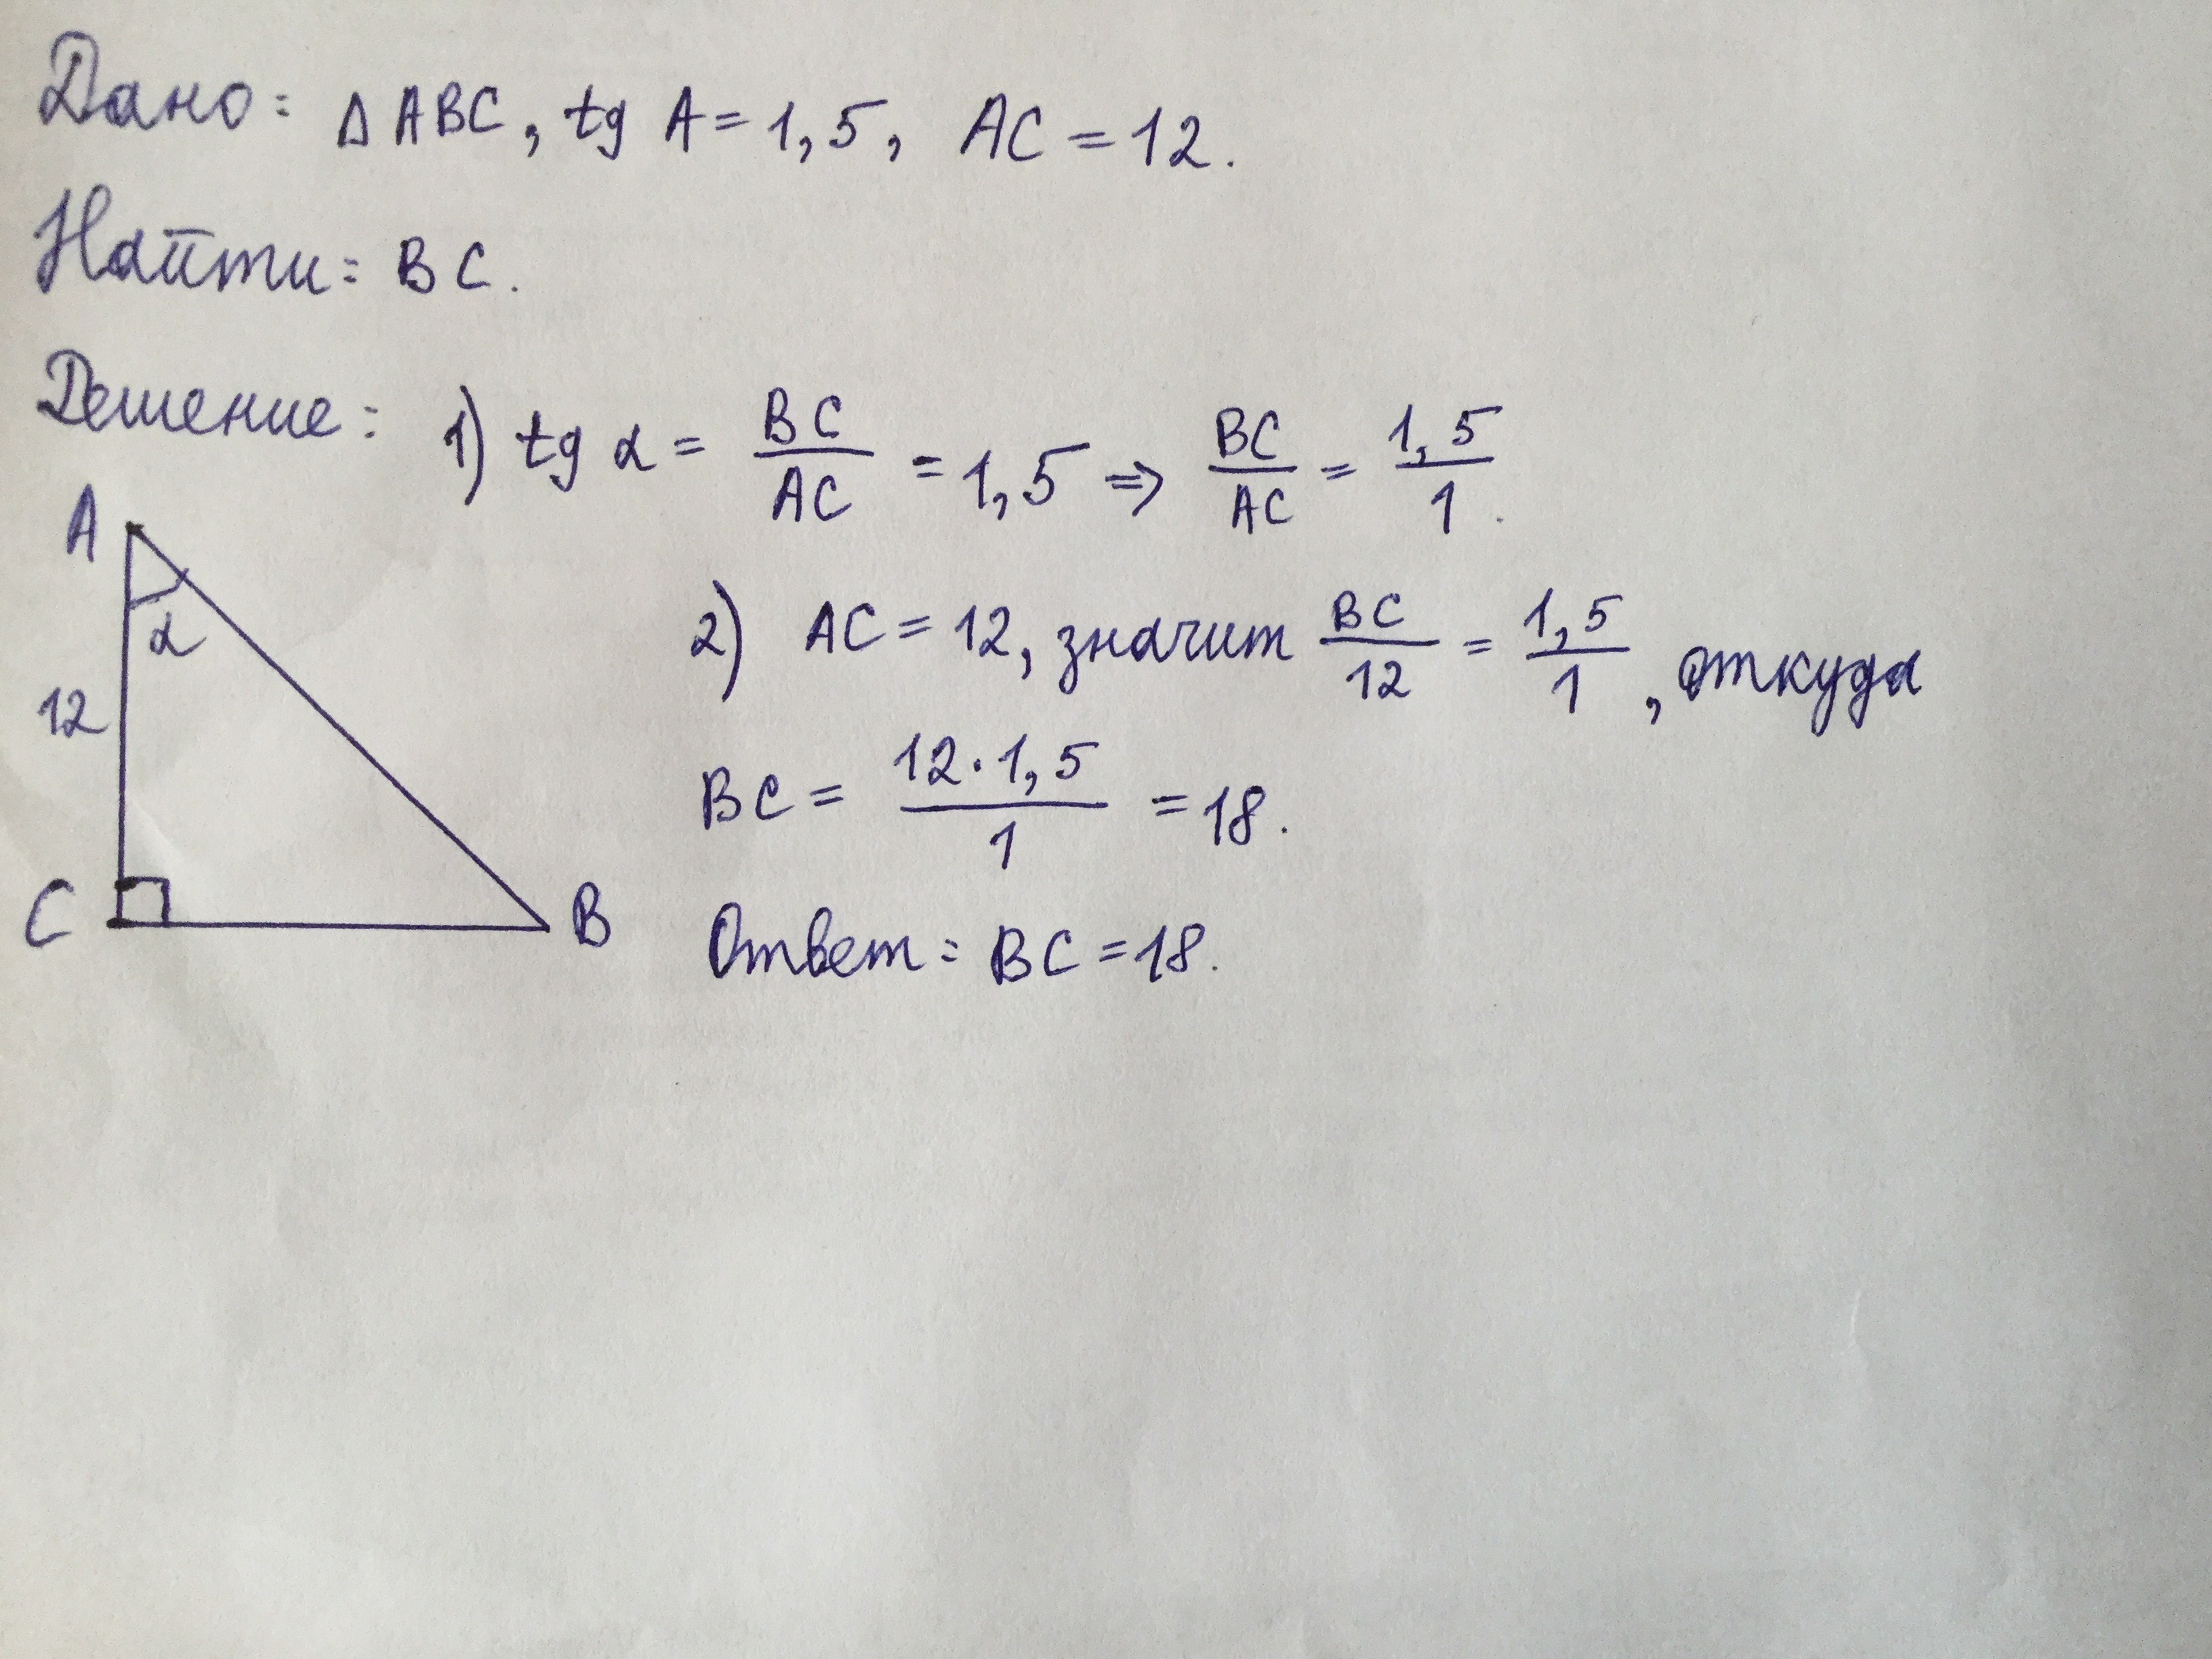 Дано: Δ ABC, tg A = 1,5, AC = 12.
Найти: BC.
Решение: 1) tg α = BC/AC = 1,5 ⇒ BC/AC = 1,5/1.
2) AC = 12, значит BC/12 = 1,5/1, откуда
BC = 12·1,5/1 = 18.
Ответ: BC = 18.
A
α
12
C
B